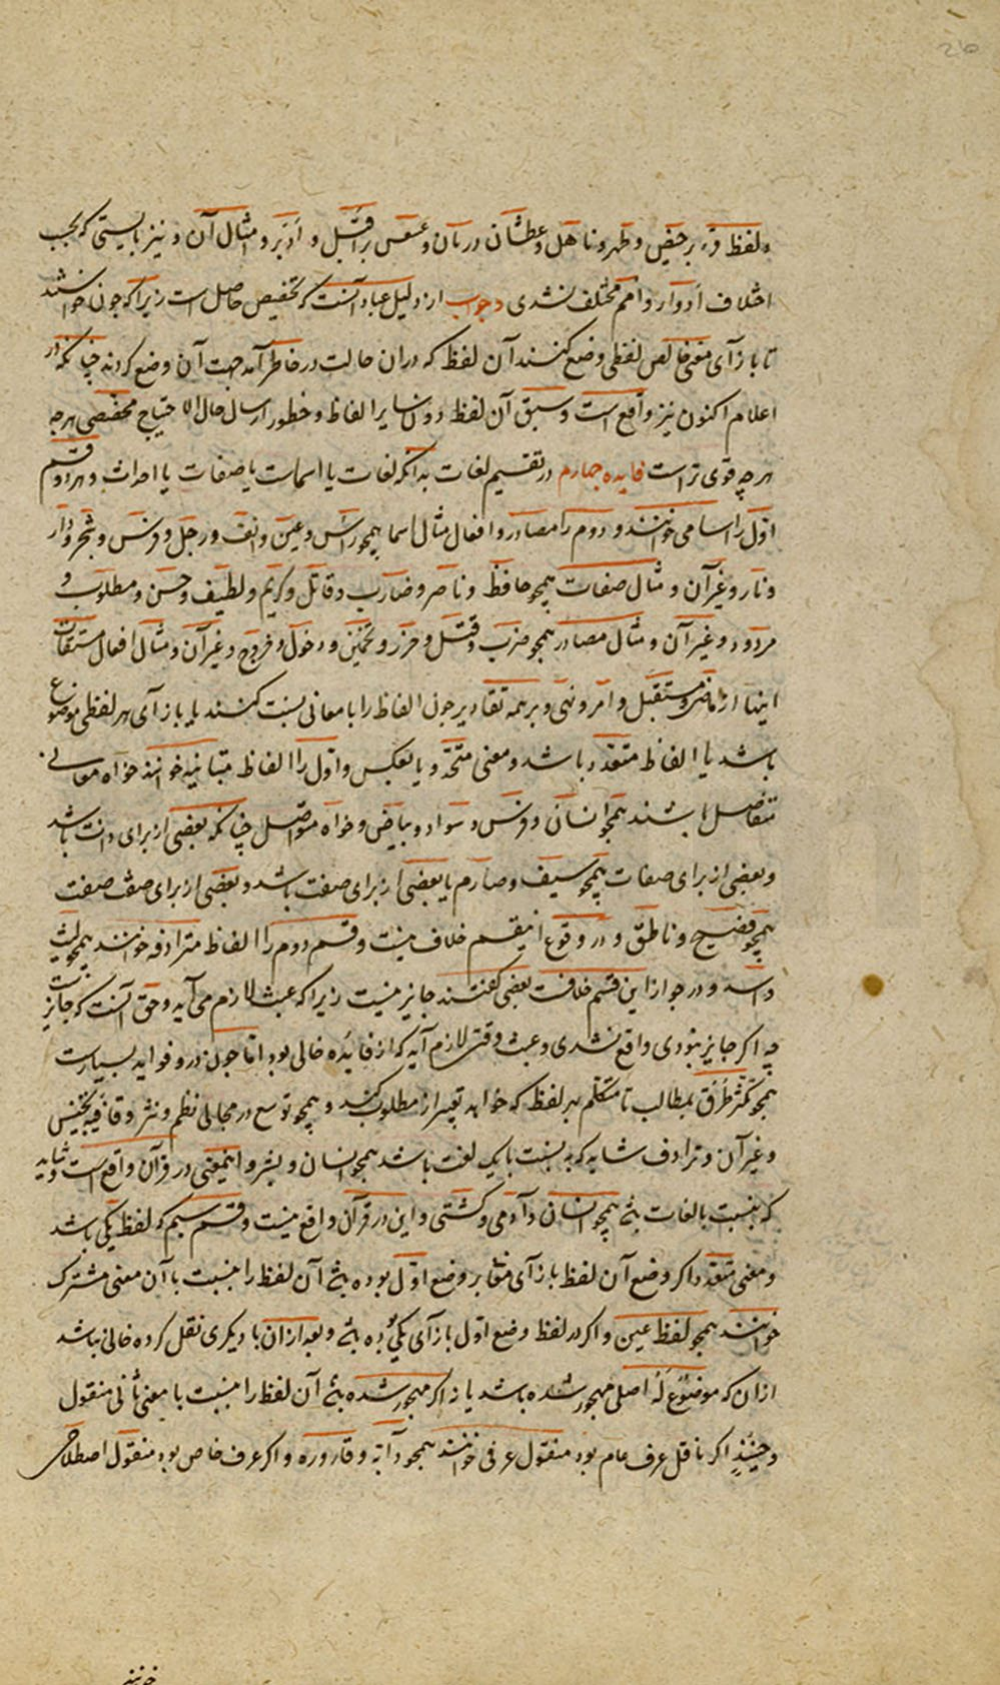 ولفظ قرء بر حیض و طهر و ناهل و عطشان و ریان و عسعس بر اقبل و ادبر و امثال آن و نیز بایستی که بحسب
اختلاف ادوار و امم مختلف نشدی و جواب از دلیل عباد آنست که تخصیص حاصل است زیرا که چون خواستند
تا بازآی معنی خالص لفظی وضع کنند آن لفظ که در ان حالت در خاطر آمد جهت آن وضع کردند چنانکه در
اعلام اکنون نیز واقع است و سبق آن لفظ دون سایر الفاظ و خطور ارسال حال الاحتیاج مخصصی هرچه
هرچه قوی تر است فایده چهارم در تقسیم لغات بدانکه لغات یا اسماست یا صفات یا احداث و هر دو قسم
اول را اسامی خوانند و دوم را مصادر و افعال مثال اسما همچو راس و عین و انف و رجل و فرس و شجر و دار
و نار و غیر آن و مثال صفات همچو حافظ و ناصر و ضارب و قاتل و کریم و لطیف و حسن و مطلوب و
مردود و غیر آن و مثال مصادر همچو ضرب و قتل و حزر و تخمین و دخول و خروج و غیر آن و مثال افعال مشتقات
اینها از ماضی و مستقبل و امر و نهی و بر همه تقادیر چون الفاظ را با معانی نسبت کنند یا بازآی هر لفظی موضوع
باشد یا الفاظ متعدد باشد و معنی متحد و یا بعکس و اول را الفاظ متباینه خوانند خواه معانی
متفاصل باشند همچو انسان و فرس و سواد و بیاض و خواه متواصل چنانکه بعضی از برای ذات باشد
و بعضی از برای صفات همچو سیف و صارم یا بعضی از برای صفت باشد و بعضی از برای صفت صفت
همچو فصیح و ناطق و در وقوع اینقسم خلاف نیست و قسم دوم را الفاظ مترادفه خوانند همچو لیث
و اسد و در جواز این قسم خلافست بعضی گفتند جایز نیست زیرا که عبث لازم می آید و حق آنست که جایزست
چه اگر جایز نبودی واقع نشدی و عبث وقتی لازم آید که از فایده خالی بود اما چون درو فواید بسیارست
همچو تکثر طرق بمطالب تا متکلم بهر لفظ که خواهد تعبیر از مطلوب کند و همچو توسع در مجالی نظم و نثر و قافیه و تجنیس
و غیر آن و ترادف شاید که بنسبت با یک لغت باشد همچو انسان و بشر و اینمعنی در قرآن واقع است و شاید
که بنسبت بالغات بود همچو انسان و آدمی و کشتی و این در قرآن واقع نیست و قسم سیم که لفظ یکی باشد
و معنی متعدد اگر وضع آن لفظ بازآی مغایر وضع اول بوده بود آن لفظ را بنسبت با آن معنی مشترک
خوانند همچو لفظ عین و اگر در لفظ وضع اول بازآی یکی بوده بود و بعد از ان با دیگری نقل کرده خالی نباشد
از ان که موضوع له اصلی مهجور شده باشد یا نه اگر مهجور شده بود آن لفظ را بنسبت با معنی ثانی منقول
و حینئذ اگر ناقل عرف عام بود منقول عرفی خوانند همچو دابه و قاروره و اگر عرف خاص بود منقول اصطلاحی
خوانند